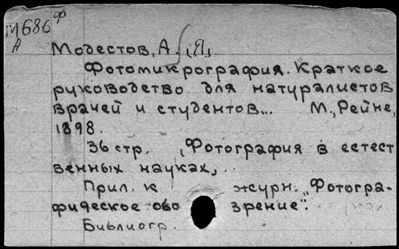 М686ф
А
Модестов, А. (Я)
Фотомикрография. Краткое
руководство для натуралистов
врачей и студентов... М., Рейне,
1898.
36 стр. „Фотография в естест
венных науках„
Прил. к журн. „Фотогра-
фидеское обо зрение".
Библиогр.